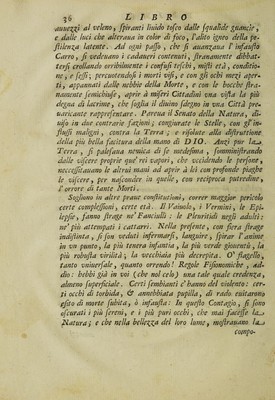 36 LIBRO
auuezzi al veleno, spiranti liuido tosco dalle squalide guancie,
e dalle luci che alterana in color di foco, l'alito igneo della pe-
stilenza latente. Ad ogni passo, che si auanzaua l'infausto
Carro, si vedeuano i cadaueri contenuti, stranamente dibbat-
tersi crollando orribilmente i confusi teschi, misti età, condizio-
ne, e sessi; percuotendosi i morti visi, e con gli ochi mezi aper-
ti, appannati dalle nebbie della Morte, e con le bocche stra-
namente semichiuse, aprir à miseri Cittadini vna vista la più
degna di lacrime, che soglia il diuino sdegno in vna Città pre-
uaricante rappresentare. Pareua il Senato della Natura, di-
uiso in due contrarie fazioni; congiurate le Stelle, con gl'in-
flussi maligni, contra la Terra; e risolute alla distruttione
della più bella facitura della mano di DIO. Anzi pur la
Terra, si palesaua nemica di se medesima, somministrando
dalle viscere proprie que' rei vapori, che vccidendo le persone,
necessitauano le altrui mani ad aprir à lei con profonde piaghe
le viscere, per nasconder in quelle, con reciproca putredine,
l'orrore di tante Morti.
Sogliono in altre praue constitutioni, correr maggior pericolo
certe complessioni, certe età. I Vaiuolo, i Vermini, le Epi-
lepsie, fanno strage ne' Fanciulli: le Pleuritidi negli adulti:
ne' più attempati i cattarri. Nella presente, con fiera strage
indistinta, si son veduti infermarsi, languire, spirar l'anime
in vn punto, la più tenera infantia, la più verde giouentù, la
più robusta virilità; la vecchiaia più decrepita. O' flagello,
tanto vniuersale, quanto orrendo! Regole Fisonomiche, ad-
dio: hebbi già in voi (che nol celo) vna tale quale credenza,
almeno superficiale. Certi sembianti c'hanno del violento: cer-
ti occhi di torbida, & annebbiata pupilla, di rado euitarono
esito di morte subita, ò infausta: In questo Contagio, si sono
oscurati i più sereni, e i più puri occhi, che mai facesse la
Natura; e che nella bellezza del loro lume, mostrauano la
compo-